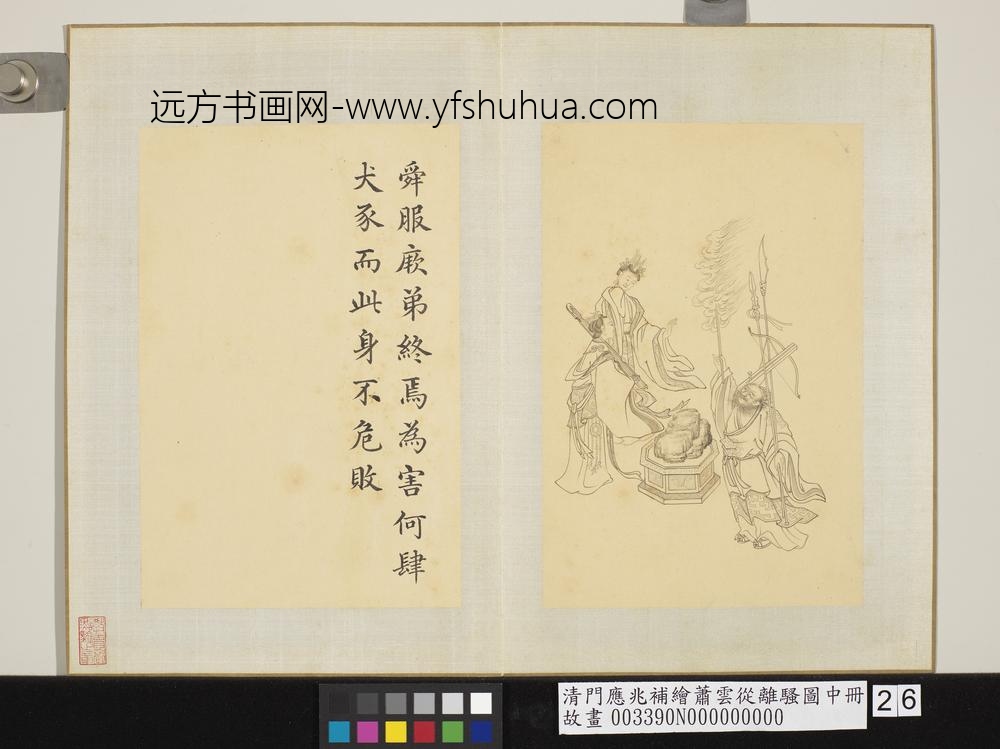 远方书画网-www.yfshuhua.com
舜服厥弟終焉為害何肆
犬豕而此身不危敗
清門應兆補繪蕭雲從離騷圖中冊
故畫 003390N000000000
26